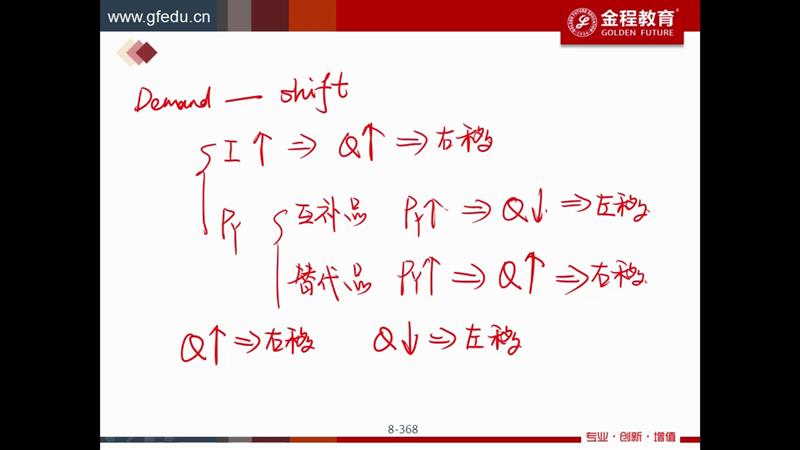 www.gfedu.cn
金程教育
GOLDEN FUTURE
Demand — shift
I ↑ ⇒ Q↑ ⇒ 右移
PY
互补品 PY↑ ⇒ Q↓ ⇒ 左移
替代品 PY↑ ⇒ Q↑ ⇒ 右移
Q↑ ⇒ 右移 Q↓ ⇒ 左移
8-368
专业·创新·增值